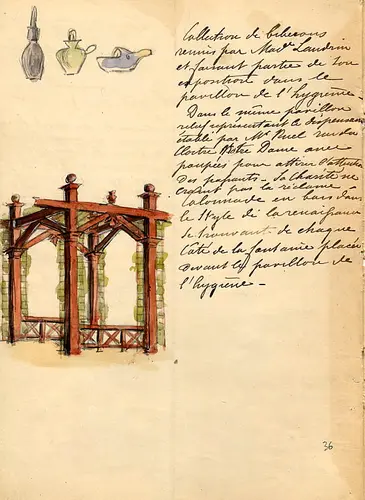 Collection de biberons
remis par Mad. Landrin
et faisant partie de son
exposition dans le
pavillon de l'hygiène -
Dans le même pavillon
relief représentant le dispensaire
établi par Mr Ruel rue du
Cloitre Notre Dame avec
poupées pour attirer l'attention
des passants - La Charité ne
craint pas la réclame -
Colonnade en bois dans
le style de la renaissance
se trouvant de chaque
Coté de la fontaine placée
devant le pavillon de
l'hygiène -
36